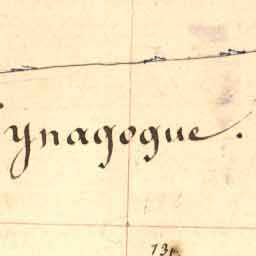 Synagogue.
73.